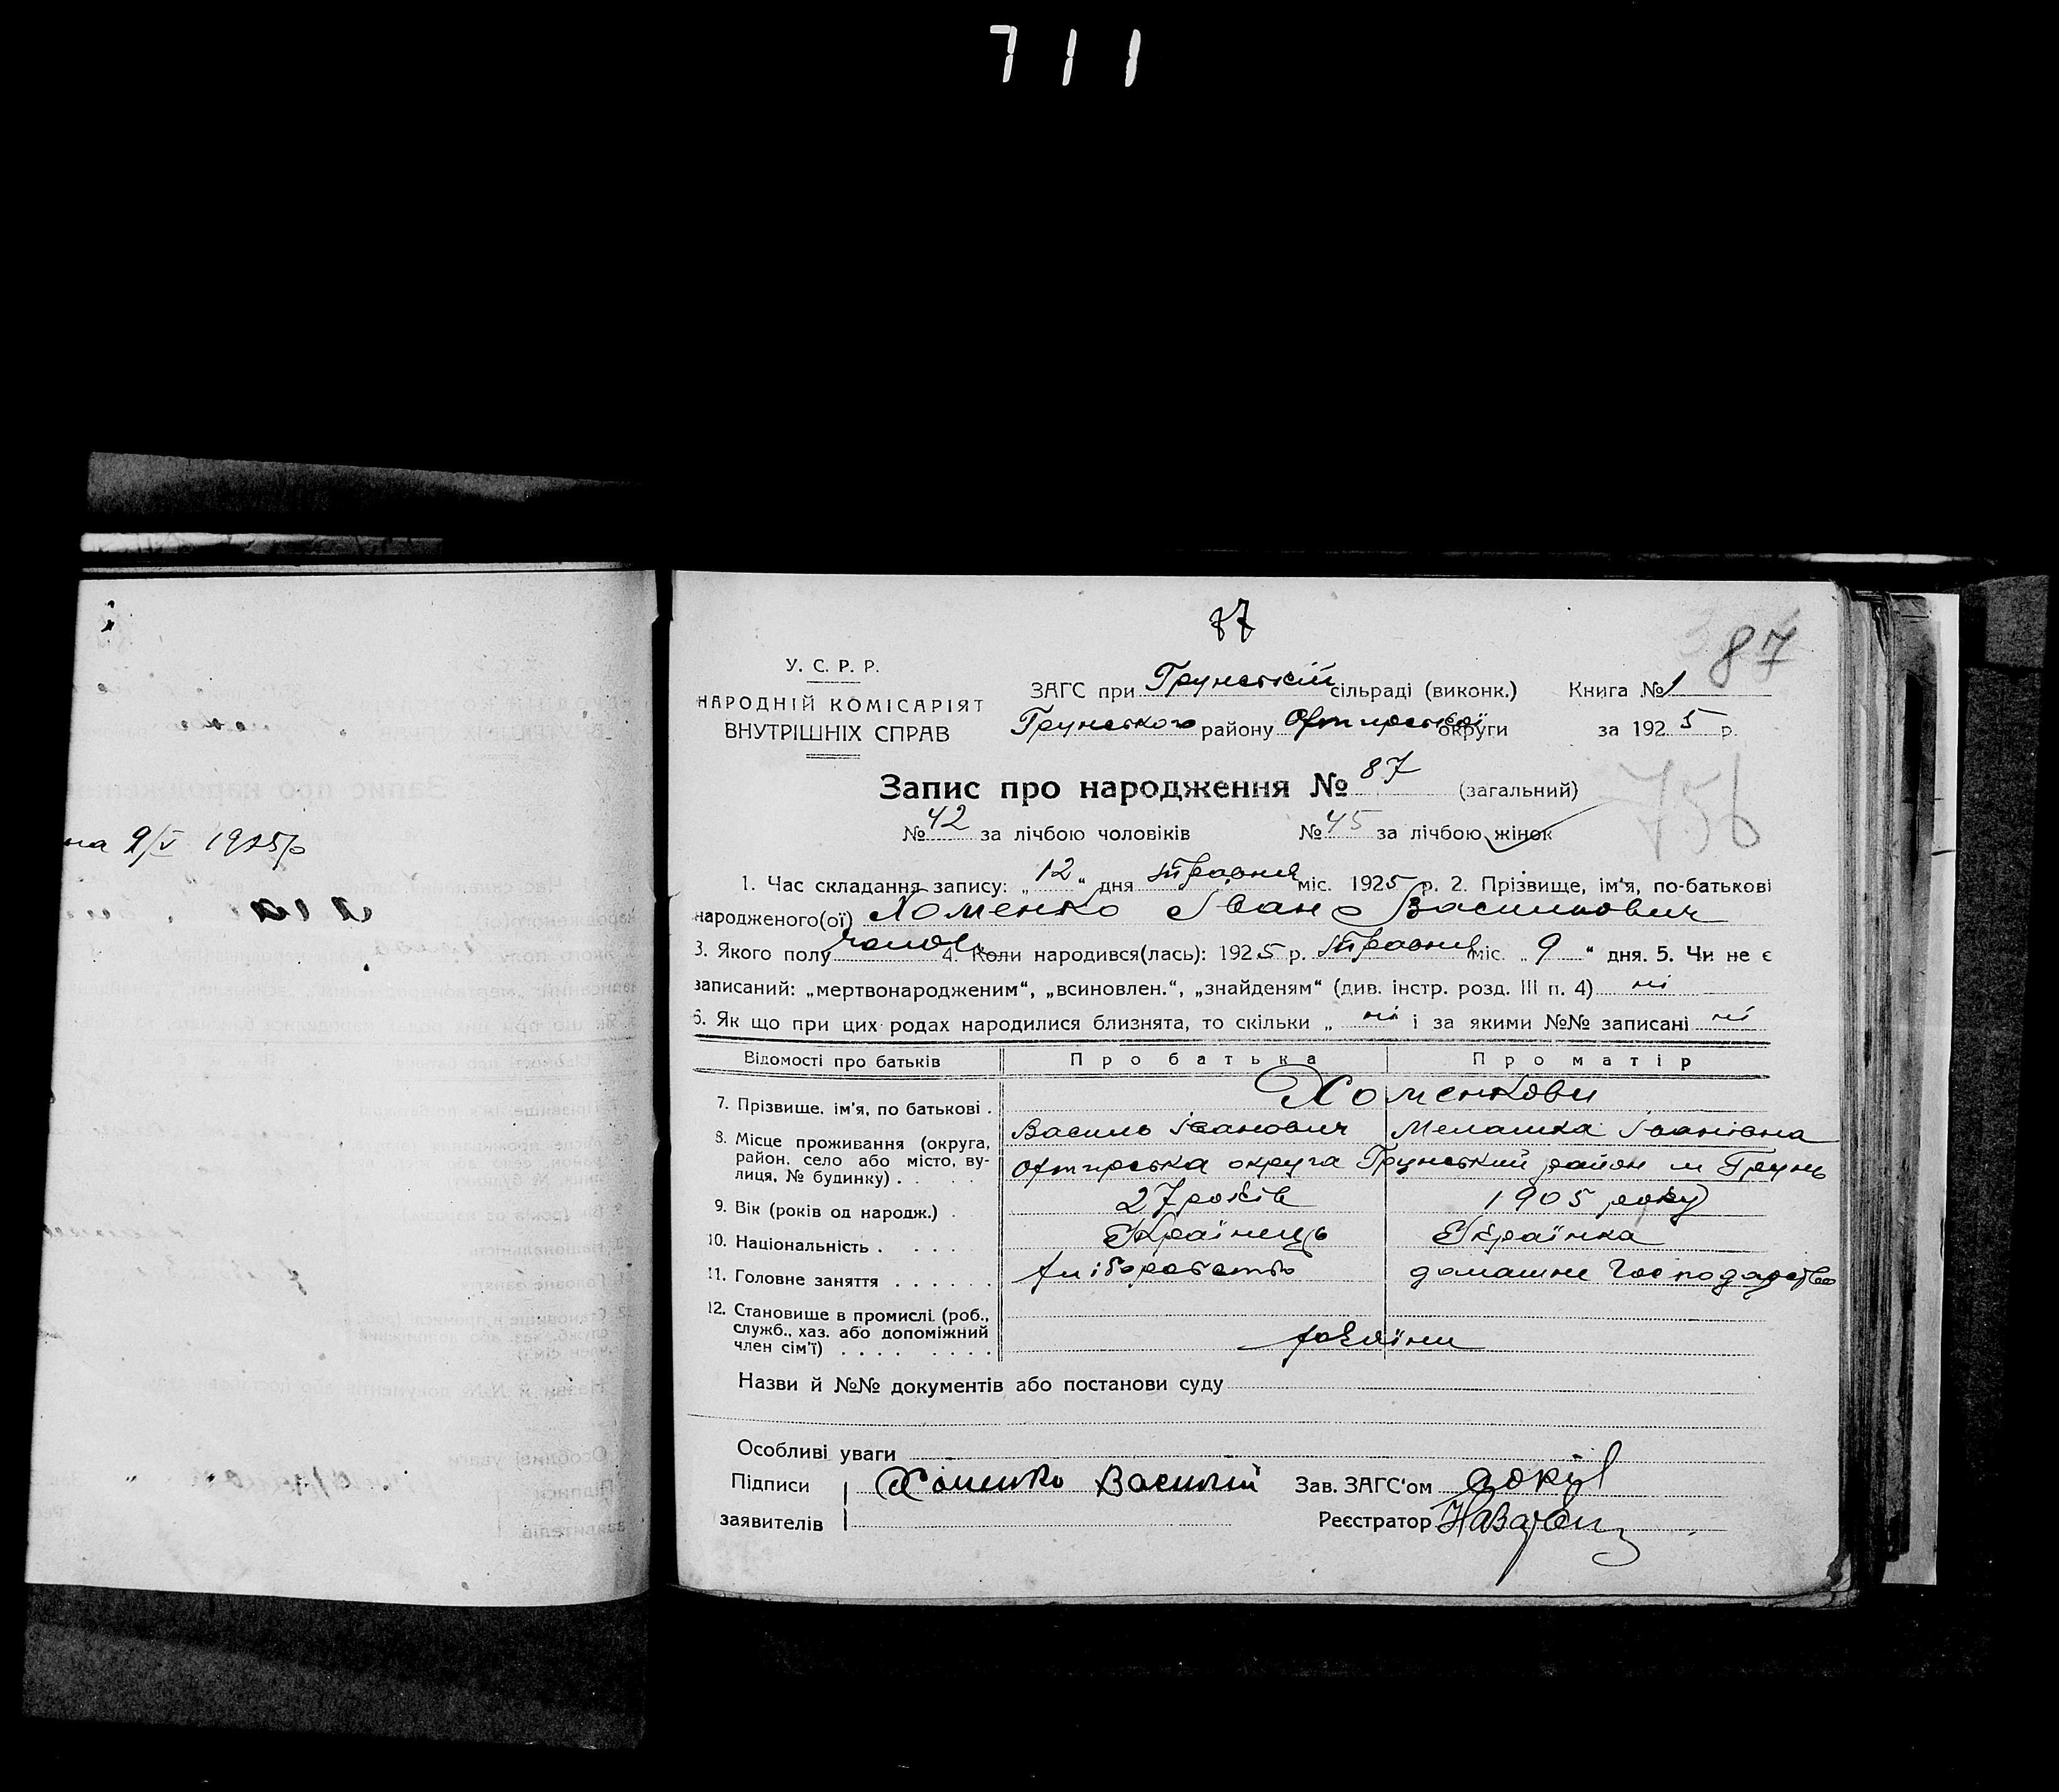 711
на 9/V 1925р
87
87
756
У. С. Р. Р.
НАРОДНІЙ КОМІСАРІЯТ
ВНУТРІШНІХ СПРАВ
ЗАГС при Грунській сільраді (виконк.) Книга № 1
Грунського району Охтирської округи за 1925 р.
Запис про народження № 87 (загальний)
№ 42 за лічбою чоловіків № 45 за лічбою жінок
1. Час складання запису: „12“ дня травня міс. 1925 р. 2. Прізвище, ім'я, по-батькові
народженого(ої) Хоменко Іван Василиович
3. Якого полу чолов. 4. Коли народився(лась): 1925 р. травня міс. „9“ дня. 5. Чи не є
записаний: „мертвонародженим“, „всиновлен.“, „знайденям“ (див. інстр. розд. III п. 4) ні
6. Як що при цих родах народилися близнята, то скільки „ ні і за якими №№ записані ні
Відомості про батьків Про батька Про матір
7. Прізвище, ім'я, по батькові . Хоменкови
Василь Іванович Мелашка Іванівна
8. Місце проживання (округа, район, село або місто, ву-
лиця, № будинку) . . . . Охтирська округа Грунський район м Грунь
9. Вік (років од народж.) . 27 років 1905 року
10. Національність . . . . Українець Українка
11. Головне заняття . . . . . . хліборобство домашнє господарство
12. Становище в промислі (роб.,
служб., хаз. або допоміжний
член сім'ї) . . . . . . . . хазяїни
Назви й №№ документів або постанови суду
Особливі уваги
Підписи Хоменко Василий Зав. ЗАГС'ом
заявителів Реєстратор